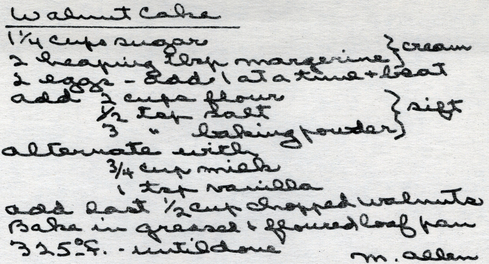 Walnut Cake
1 1/4 cups sugar
2 heaping tbsp margerine } cream
2 eggs - add 1 at a time + beat
add 2 cups flour
1/2 tsp salt } sift
3 " baking powder
alternate with
3/4 cup milk
1 tsp vanilla
add last 1/2 cup chopped walnuts
Bake in greased + floured loaf pan
325°F. - until done
M. Allen